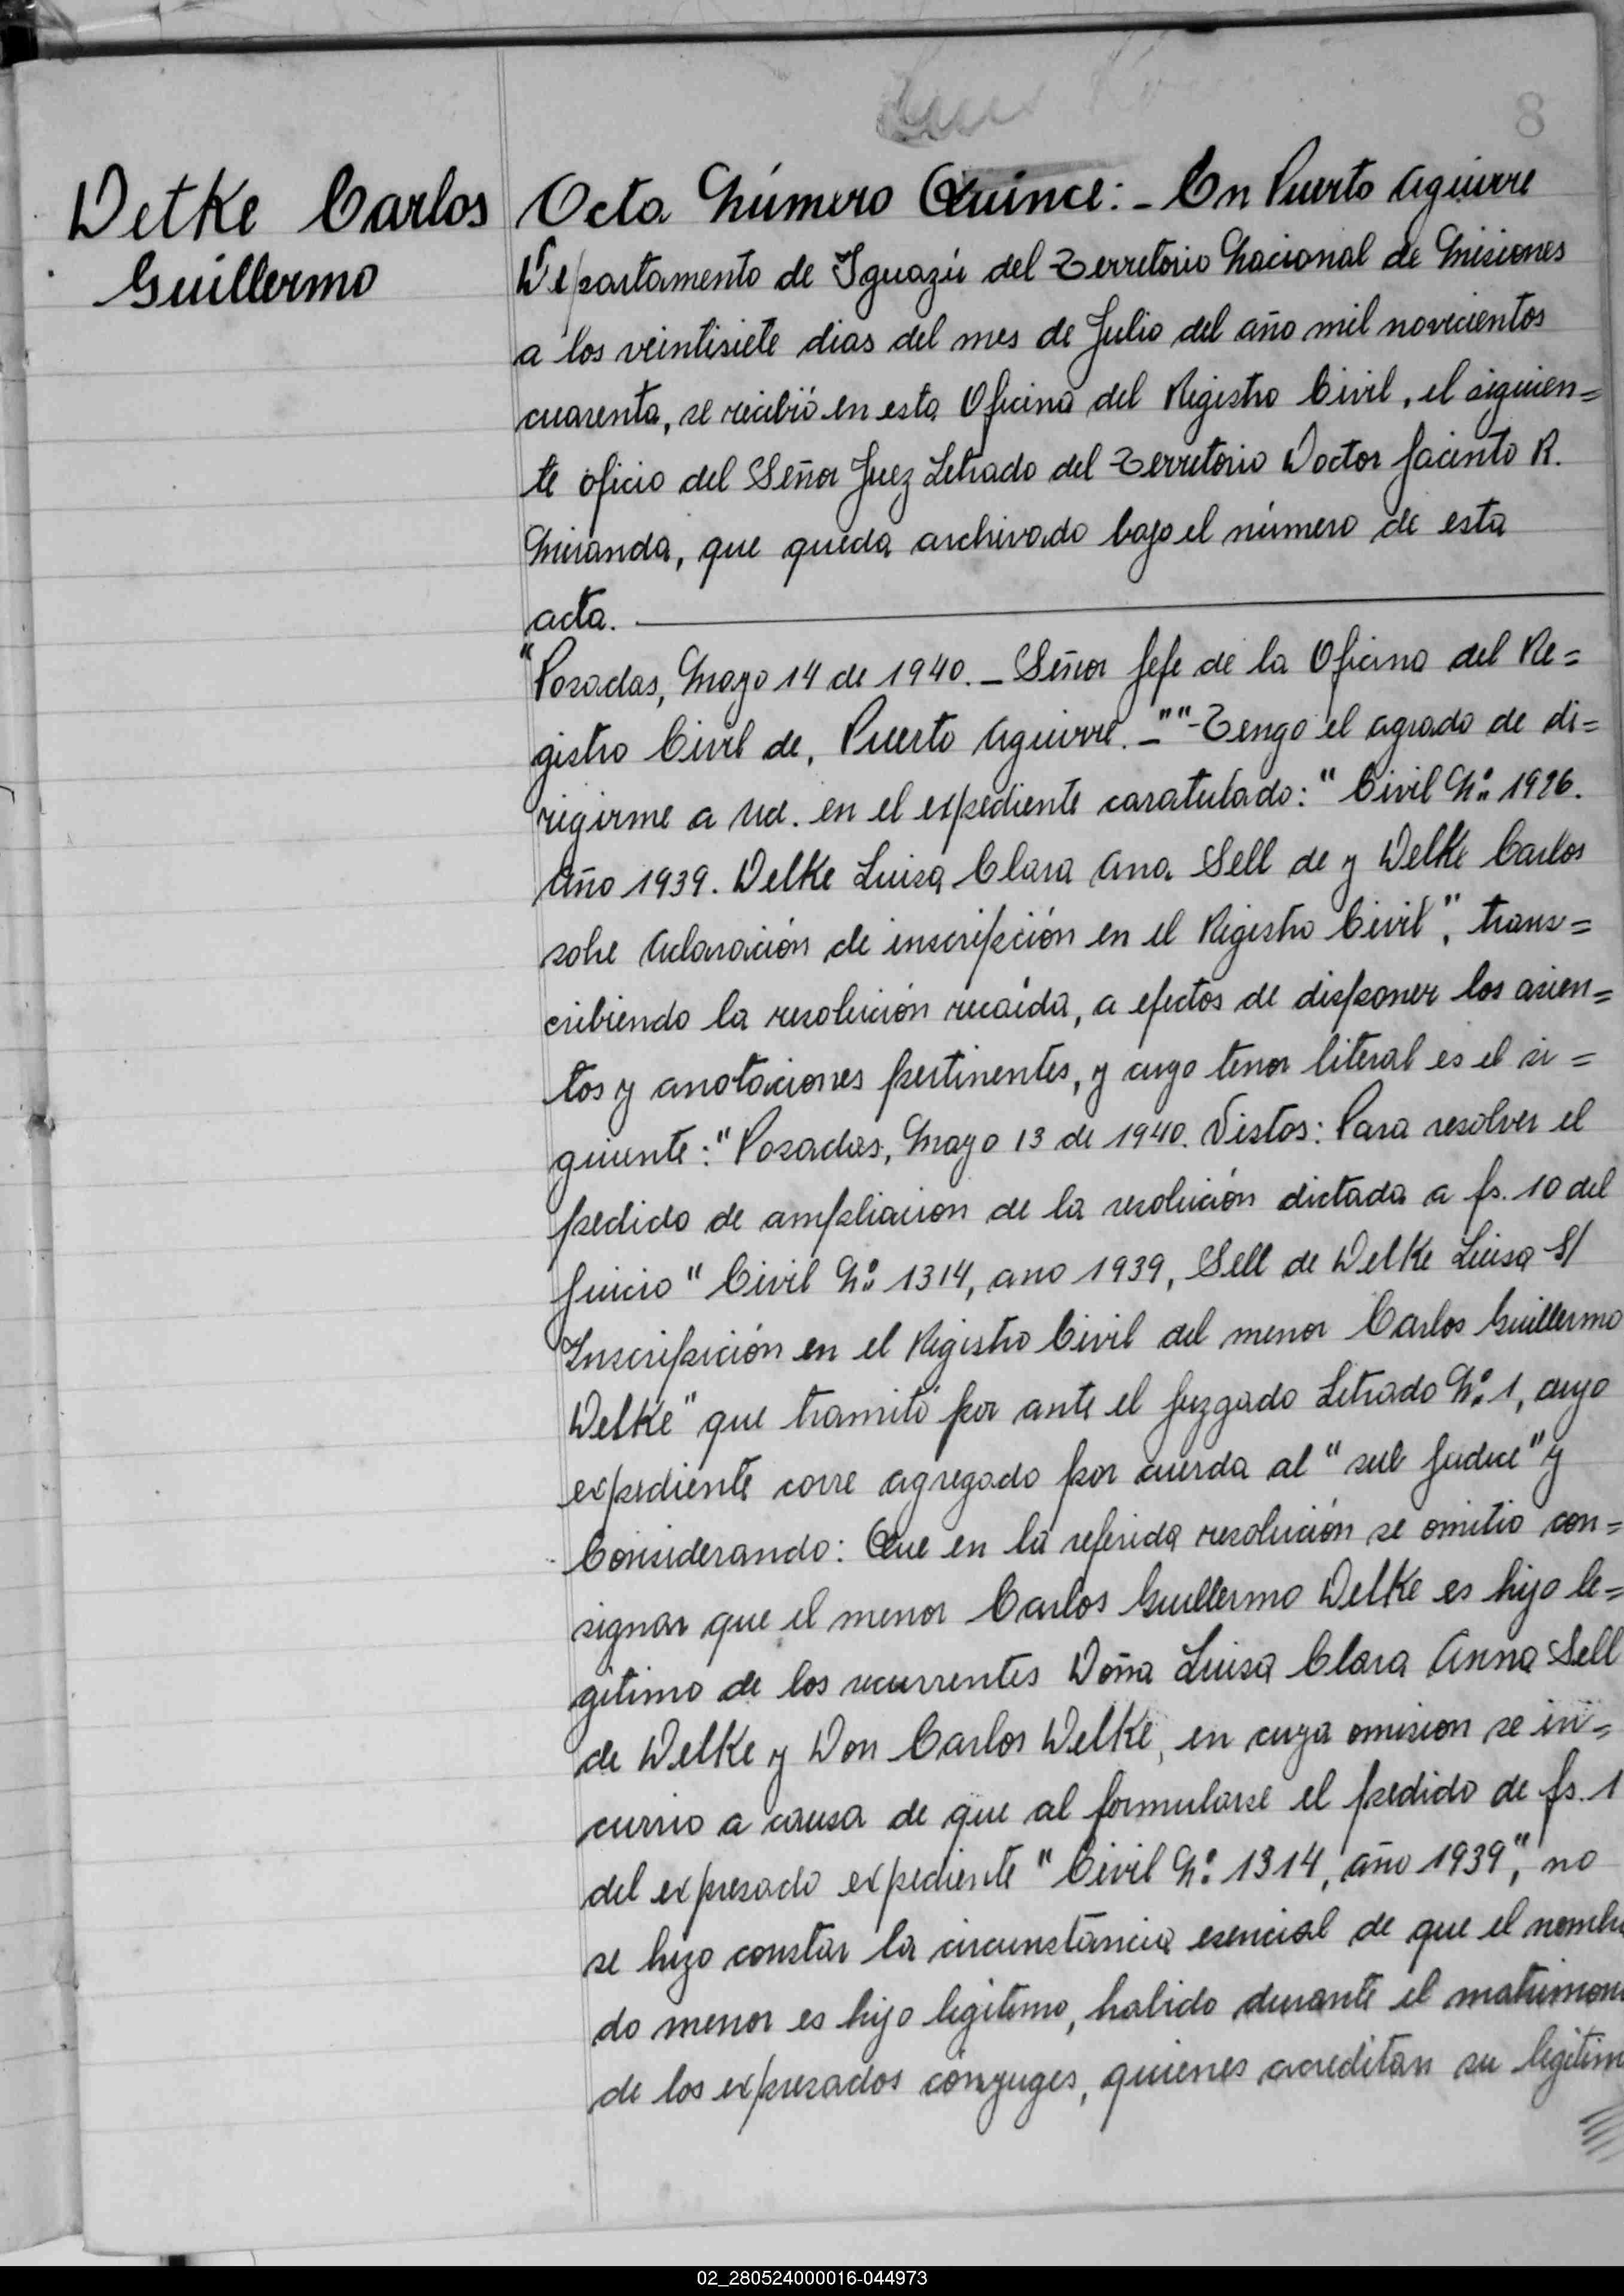 8
Wetke Carlos
Guillermo
Acta Número Quince: - En Puerto Aguirre
Departamento de Iguazú del Territorio Nacional de Misiones
a los veintisiete dias del mes de Julio del año mil novecientos
cuarenta, se recibió en esta Oficina del Registro Civil, el siguien=
te oficio del Señor Juez Letrado del Territorio Doctor Jacinto R.
Miranda, que queda archivado bajo el número de esta
acta.
"Posadas, Mayo 14 de 1940. - Señor Jefe de la Oficina del Re=
gistro Civil de, Puerto Aguirre. - "" - Tengo el agrado de di=
rigirme a Ud. en el expediente caratulado: "Civil Nº 1926.
Año 1939. Welke Luisa Clara Ana Sell de y Welke Carlos
sobre Aclaración de inscripción en el Registro Civil", trans=
cribiendo la resolución recaída, a efectos de disponer los asien=
tos y anotaciones pertinentes, y cuyo tenor literal es el si=
guiente: "Posadas, Mayo 13 de 1940. Vistos: Para resolver el
pedido de ampliacion de la resolución dictada a fs. 10 del
Juicio "Civil Nº 1314, ano 1939, Sell de Welke Luisa S/
Inscripsición en el Registro Civil del menor Carlos Guillermo
Welke" que tramitó por ante el Juzgado Letrado Nº 1, cuyo
expediente corre agregado por cuerda al "sub judice" y
Considerando: Que en la referida resolución se omitio con=
signar que el menor Carlos Guillermo Welke es hijo le=
gitimo de los recurrentes Doña Luisa Clara Anna Sell
de Welke y Don Carlos Welke, en cuya omision se in=
currio a causa de que al formularse el pedido de fs. 1
del expresado expediente "Civil Nº 1314, año 1939", no
se hizo constar la circunstancia esencial de que el nombra
do menor es hijo legitimo, habido durante el matrimoni
de los expresados cónyuges, quienes acreditan su legitim
02_280524000016-044973